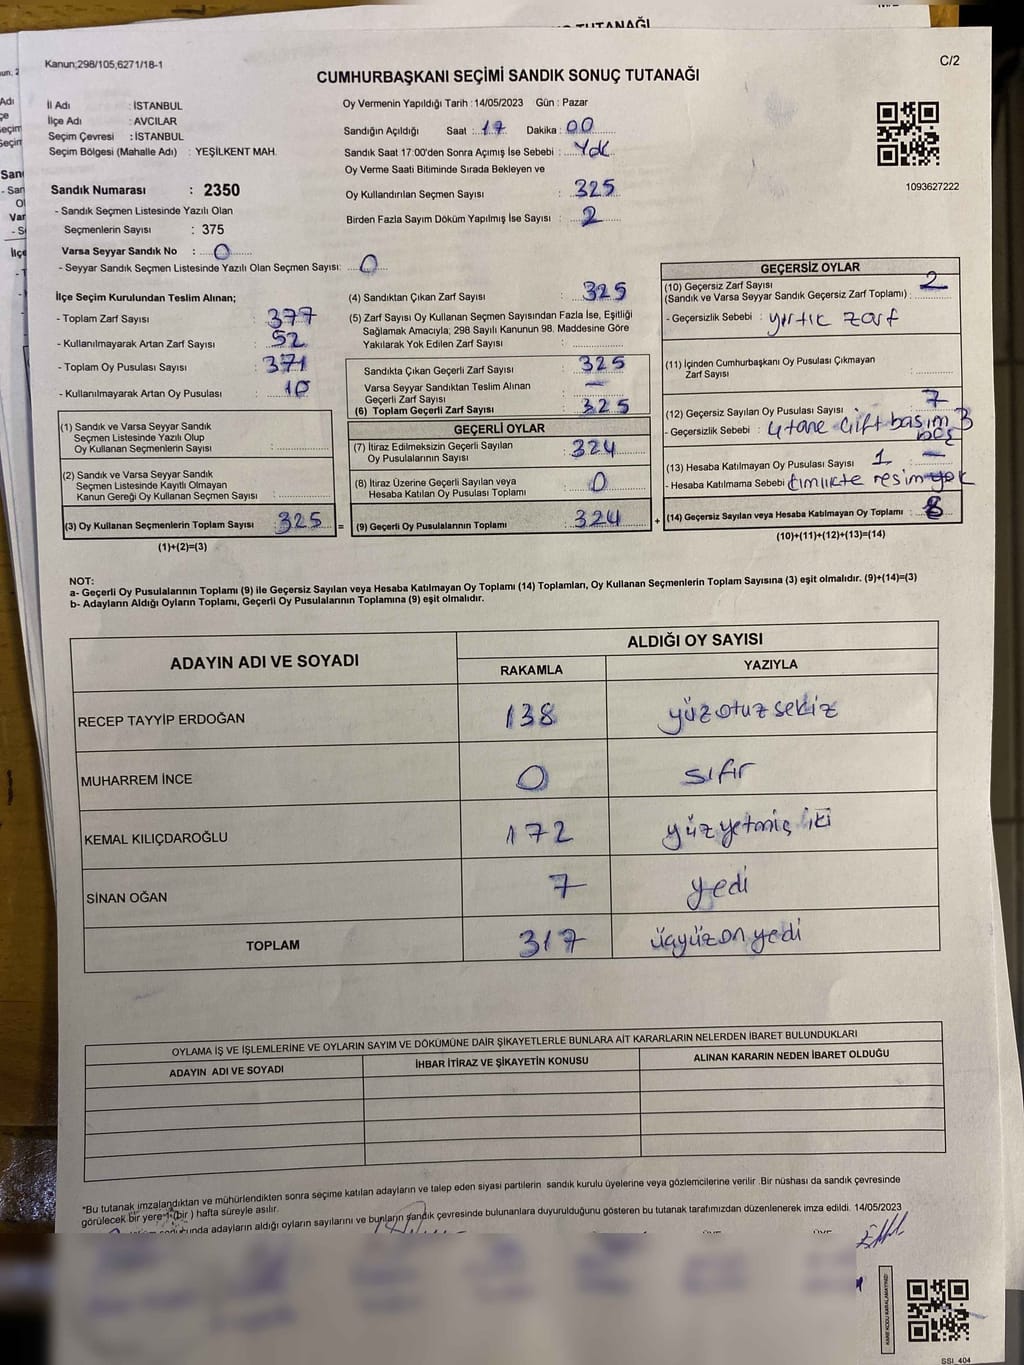 TUTANAĞI
Kanun;298/105,6271/18-1
C/2
CUMHURBAŞKANI SEÇİMİ SANDIK SONUÇ TUTANAĞI
İl Adı : İSTANBUL
İlçe Adı : AVCILAR
Seçim Çevresi : İSTANBUL
Seçim Bölgesi (Mahalle Adı) : YEŞİLKENT MAH.
Oy Vermenin Yapıldığı Tarih : 14/05/2023 Gün : Pazar
Sandığın Açıldığı Saat : 17 Dakika : 00
Sandık Saat 17:00'den Sonra Açımış İse Sebebi : Yok
Oy Verme Saati Bitiminde Sırada Bekleyen ve
Oy Kullandırılan Seçmen Sayısı : 325
Birden Fazla Sayım Döküm Yapılmış İse Sayısı : 2
1093627222
Sandık Numarası : 2350
- Sandık Seçmen Listesinde Yazılı Olan
Seçmenlerin Sayısı : 375
Varsa Seyyar Sandık No : 0
- Seyyar Sandık Seçmen Listesinde Yazılı Olan Seçmen Sayısı: 0
İlçe Seçim Kurulundan Teslim Alınan;
- Toplam Zarf Sayısı : 377
- Kullanılmayarak Artan Zarf Sayısı : 52
- Toplam Oy Pusulası Sayısı : 371
- Kullanılmayarak Artan Oy Pusulası : 10
(1) Sandık ve Varsa Seyyar Sandık
Seçmen Listesinde Yazılı Olup
Oy Kullanan Seçmenlerin Sayısı :
(2) Sandık ve Varsa Seyyar Sandık
Seçmen Listesinde Kayıtlı Olmayan
Kanun Gereği Oy Kullanan Seçmen Sayısı :
(3) Oy Kullanan Seçmenlerin Toplam Sayısı : 325 =
(1)+(2)=(3)
(4) Sandıktan Çıkan Zarf Sayısı : 325
(5) Zarf Sayısı Oy Kullanan Seçmen Sayısından Fazla İse, Eşitliği
Sağlamak Amacıyla; 298 Sayılı Kanunun 98. Maddesine Göre
Yakılarak Yok Edilen Zarf Sayısı :
Sandıkta Çıkan Geçerli Zarf Sayısı : 325
Varsa Seyyar Sandıktan Teslim Alınan
Geçerli Zarf Sayısı : —
(6) Toplam Geçerli Zarf Sayısı : 325
GEÇERLİ OYLAR
(7) İtiraz Edilmeksizin Geçerli Sayılan
Oy Pusulalarının Sayısı : 324
(8) İtiraz Üzerine Geçerli Sayılan veya
Hesaba Katılan Oy Pusulası Toplamı : 0
(9) Geçerli Oy Pusulalarının Toplamı : 324 +
GEÇERSİZ OYLAR
(10) Geçersiz Zarf Sayısı
(Sandık ve Varsa Seyyar Sandık Geçersiz Zarf Toplamı) : 2
- Geçersizlik Sebebi : yırtık zarf
(11) İçinden Cumhurbaşkanı Oy Pusulası Çıkmayan
Zarf Sayısı :
(12) Geçersiz Sayılan Oy Pusulası Sayısı : 7
- Geçersizlik Sebebi : 4 tane çift basım 3
boş
(13) Hesaba Katılmayan Oy Pusulası Sayısı 1 —
- Hesaba Katılmama Sebebi kimlikte resim yok
(14) Geçersiz Sayılan veya Hesaba Katılmayan Oy Toplamı : 8
(10)+(11)+(12)+(13)=(14)
NOT:
a- Geçerli Oy Pusulalarının Toplamı (9) ile Geçersiz Sayılan veya Hesaba Katılmayan Oy Toplamı (14) Toplamları, Oy Kullanan Seçmenlerin Toplam Sayısına (3) eşit olmalıdır. (9)+(14)=(3)
b- Adayların Aldığı Oyların Toplamı, Geçerli Oy Pusulalarının Toplamına (9) eşit olmalıdır.
ADAYIN ADI VE SOYADI
ALDIĞI OY SAYISI
RAKAMLA YAZIYLA
RECEP TAYYİP ERDOĞAN 138 yüzotuz sekiz
MUHARREM İNCE 0 sıfır
KEMAL KILIÇDAROĞLU 172 yüzyetmiş iki
SİNAN OĞAN 7 yedi
TOPLAM 317 üçyüzon yedi
OYLAMA İŞ VE İŞLEMLERİNE VE OYLARIN SAYIM VE DÖKÜMÜNE DAİR ŞİKAYETLERLE BUNLARA AİT KARARLARIN NELERDEN İBARET BULUNDUKLARI
ADAYIN ADI VE SOYADI İHBAR İTİRAZ VE ŞİKAYETİN KONUSU ALINAN KARARIN NEDEN İBARET OLDUĞU
*Bu tutanak imzalandıktan ve mühürlendikten sonra seçime katılan adayların ve talep eden siyasi partilerin sandık kurulu üyelerine veya gözlemcilerine verilir .Bir nüshası da sandık çevresinde
görülecek bir yere 1 (bir ) hafta süreyle asılır.
adayların aldığı oyların sayılarını ve bunların sandık çevresinde bulunanlara duyurulduğunu gösteren bu tutanak tarafımızdan düzenlenerek imza edildi. 14/05/2023
KARE KODU KARALAMAYINIZ!
SSI_404